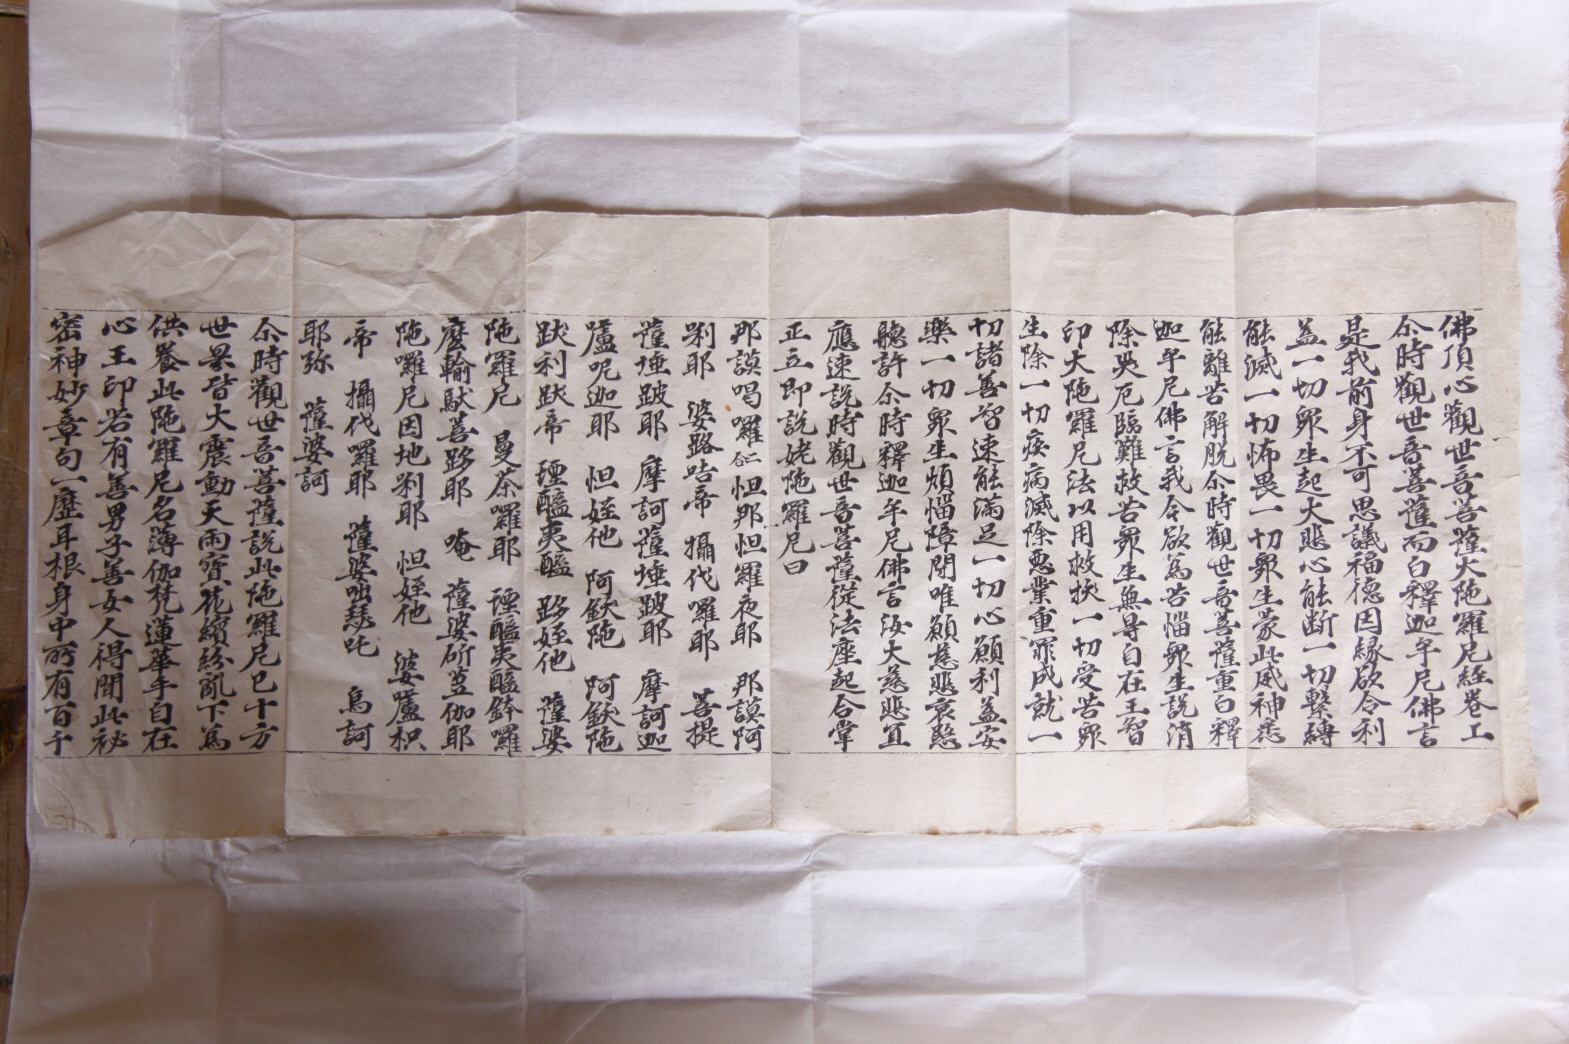 佛頂心觀世音菩薩大陁羅尼經卷上
尒時觀世音菩薩而白釋迦牟尼佛言
是我前身不可思議福德因緣欲令利
益一切眾生起大悲心能断一切繫縛
能滅一切怖畏一切眾生蒙此威神悉
能離苦解脫尒時觀世音菩薩重白釋
迦牟尼佛言我今欲為苦惱眾生說消
除灾厄臨難救苦眾生無㝵自在王智
印大陁羅尼法以用救拔一切受苦眾
生除一切疾病滅除惡業重罪成就一
切諸善智速能滿足一切心願利益安
樂一切眾生煩惱障閇唯願慈悲哀愍
聽許尒時釋迦牟尼佛言汝大慈悲宜
應速說時觀世音菩薩從法座起合掌
正立即說姥陁羅尼曰
那謨喝囉 怛那怛羅夜耶 那謨阿
唎耶 婆路咭帝 攝伐囉耶 菩提
薩埵跛耶 摩訶薩埵跛耶 摩訶迦
盧呢迦耶 怛姪他 阿鈥陁 阿鈥陁
跋利跋帝 堙醯夷醯 跢姪他 薩婆
陁羅尼 曼茶囉耶 堙醯夷醯鉢囉
麼輸馱善跢耶 唵 薩婆斫芻伽耶
陁囉尼因地唎耶 怛姪他 婆盧枳
帝 攝伐囉耶 薩婆咄瑟吒 烏訶
耶弥 薩婆訶
尒時觀世音菩薩說此陁羅尼已十方
世界皆大震動天雨寶花繽紛亂下為
供養此陁羅尼名薄伽梵蓮華手自在
心王印若有善男子善女人得聞此祕
密神妙章句一歷耳根身中所有百千